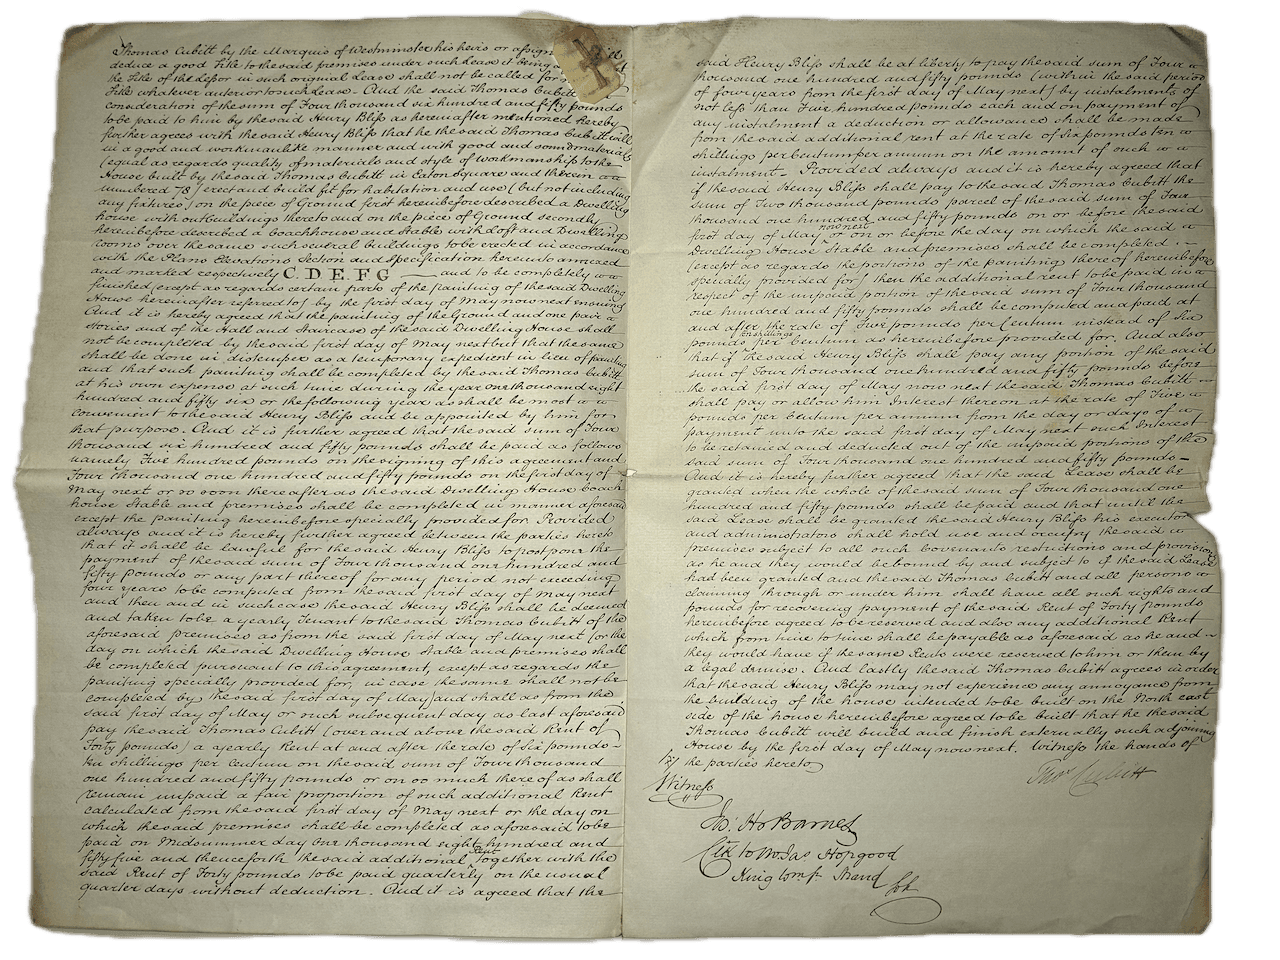 Thomas Cubitt by the Marquis of Westminster his heirs or assigns
deduce a good Title to the said premises under such Lease it being
the Title of the Lessor in such original Lease shall not be called for
Title whatever anterior to such Lease. And the said Thomas Cubitt
consideration of the sum of Four thousand six hundred and fifty pounds
to be paid to him by the said Henry Bliss as hereinafter mentioned hereby
further agrees with the said Henry Bliss that he the said Thomas Cubitt will
in a good and workmanlike manner and with good and sound materials
(equal as regards quality of materials and style of workmanship to the
House built by the said Thomas Cubitt in Eaton Square and therein
numbered 78) erect and build fit for habitation and use (but not including
any fixtures) on the piece of Ground first hereinbefore described a Dwelling
house with outbuildings thereto and on the piece of Ground secondly
hereinbefore described a Coachhouse and Stable with Loft and Dwelling
rooms over the same such several buildings to be erected in accordance
with the Plans Elevations Section and Specification hereunto annexed
and marked respectively C. D. E. F. G — and to be completely
finished (except as regards certain parts of the painting of the said Dwelling
House hereinafter referred to) by the first day of May now next ensuing
And it is hereby agreed that the painting of the Ground and one pair
stories and of the Hall and Staircase of the said Dwelling House shall
not be completed by the said first day of May next but that the same
shall be done in distemper as a temporary expedient in lieu of painting
and that such painting shall be completed by the said Thomas Cubitt
at his own expense at such time during the year one thousand eight
hundred and fifty six or the following year as shall be most
convenient to the said Henry Bliss and be appointed by him for
that purpose. And it is further agreed that the said sum of Four
thousand six hundred and fifty pounds shall be paid as follows
namely Five hundred pounds on the signing of this agreement and
Four thousand one hundred and fifty pounds on the first day of
May next or so soon thereafter as the said Dwelling House Coach
house Stable and premises shall be completed in manner aforesaid
except the painting hereinbefore specially provided for. Provided
always and it is hereby further agreed between the parties hereto
that it shall be lawful for the said Henry Bliss to postpone the
payment of the said sum of Four thousand one hundred and
fifty pounds or any part thereof for any period not exceeding
four years to be computed from the said first day of May next
and then and in such case the said Henry Bliss shall be deemed
and taken to be a yearly Tenant to the said Thomas Cubitt of the
aforesaid premises as from the said first day of May next (or the
day on which the said Dwelling House Stable and premises shall
be completed pursuant to this agreement, except as regards the
painting specially provided for, in case the same shall not be
completed by the said first day of May) and shall as from the
said first day of May or such subsequent day as last aforesaid
pay the said Thomas Cubitt (over and above the said Rent of
Forty pounds) a yearly Rent at and after the rate of Six pounds
ten shillings per Centum on the said sum of Four thousand
one hundred and fifty pounds or on so much thereof as shall
remain unpaid a fair proportion of such additional Rent
calculated from the said first day of May next or the day on
which the said premises shall be completed as aforesaid to be
paid on Midsummer day one thousand eight hundred and
fifty five and thenceforth the said additional Rent together with the
said Rent of Forty pounds to be paid quarterly on the usual
quarter days without deduction. And it is agreed that the
said Henry Bliss shall be at liberty to pay the said sum of Four
thousand one hundred and fifty pounds (within the said period
of four years from the first day of May next) by instalments of
not less than Five hundred pounds each and on payment of
any instalment a deduction or allowance shall be made
from the said additional rent at the rate of six pounds ten
shillings per Centum per annum on the amount of such
instalment. Provided always and it is hereby agreed that
if the said Henry Bliss shall pay to the said Thomas Cubitt the
sum of Two thousand pounds parcel of the said sum of Four
thousand one hundred and fifty pounds on or before the said
first day of May now next or on or before the day on which the said
Dwelling House Stable and premises shall be completed
(except as regards the portions of the painting thereof hereinbefore
specially provided for) then the additional rent to be paid in
respect of the unpaid portion of the said sum of Four thousand
one hundred and fifty pounds shall be computed and paid at
and after the rate of Five pounds per Centum instead of Six
pounds ten shillings per Centum as hereinbefore provided for. And also
that if the said Henry Bliss shall pay any portion of the said
sum of Four thousand one hundred and fifty pounds before
the said first day of May now next the said Thomas Cubitt
shall pay or allow him Interest thereon at the rate of Five
pounds per Centum per annum from the day or days of
payment unto the said first day of May next such Interest
to be retained and deducted out of the unpaid portions of the
said sum of Four thousand one hundred and fifty pounds—
And it is hereby further agreed that the said Lease shall be
granted when the whole of the said sum of Four thousand one
hundred and fifty pounds shall be paid and that until the
said Lease shall be granted the said Henry Bliss his executors
and administrators shall hold use and occupy the said
premises subject to all such Covenants restrictions and provisions
as he and they would be bound by and subject to if the said Lease
had been granted and the said Thomas Cubitt and all persons
claiming through or under him shall have all such rights and
powers for recovering payment of the said Rent of Forty pounds
hereinbefore agreed to be reserved and also any additional Rent
which from time to time shall be payable as aforesaid as he and
they would have if the same Rents were reserved to him or them by
a legal demise. And lastly the said Thomas Cubitt agrees in order
that the said Henry Bliss may not experience any annoyance from
the building of the house intended to be built on the North east
side of the house hereinbefore agreed to be built that he the said
Thomas Cubitt will build and finish externally such adjoining
House by the first day of May now next. Witness the hands of
the parties hereto
Thos Cubitt
Witness
Jos. Ho Barnes
Clk to Mr Jas Hopgood
King Wm St Strand